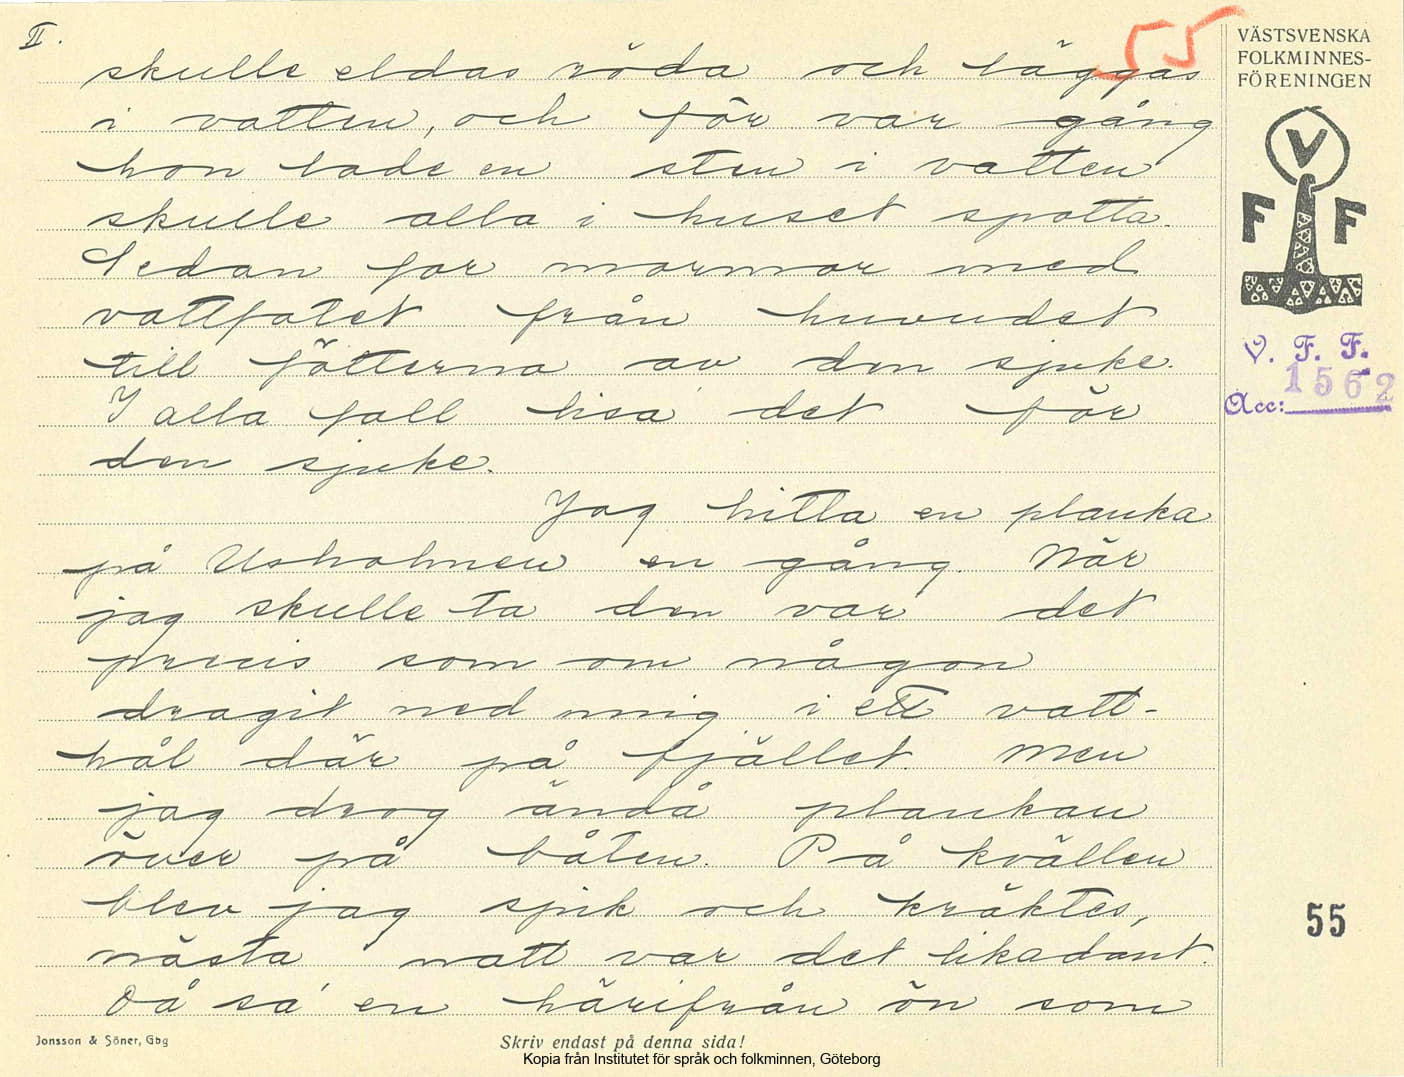 II.
55
skulle eldas röda och läggas
i vatten, och för var gång
hon lade en sten i vatten
skulle alla i huset spotta.
Sedan for mormor med
vattfatet från huvudet
till fötterna av den sjuke.
I alla fall lisa det för
den sjuke.
Jag hitta en planka
på Usholmen en gång. När
jag skulle ta den var det
precis som om någon
dragit ned mig i ett vatt-
hål där på fjället men
jag drog ändå plankan
över på båten. På kvällen
blev jag sjuk och kräktes,
nästa natt var det likadant.
Då sa en härifrån ön som
VÄSTSVENSKA
FOLKMINNES-
FÖRENINGEN
V
F F
V. F. F.
1562
Acc:
55
Jonsson & Söner, Gbg
Skriv endast på denna sida!
Kopia från Institutet för språk och folkminnen, Göteborg